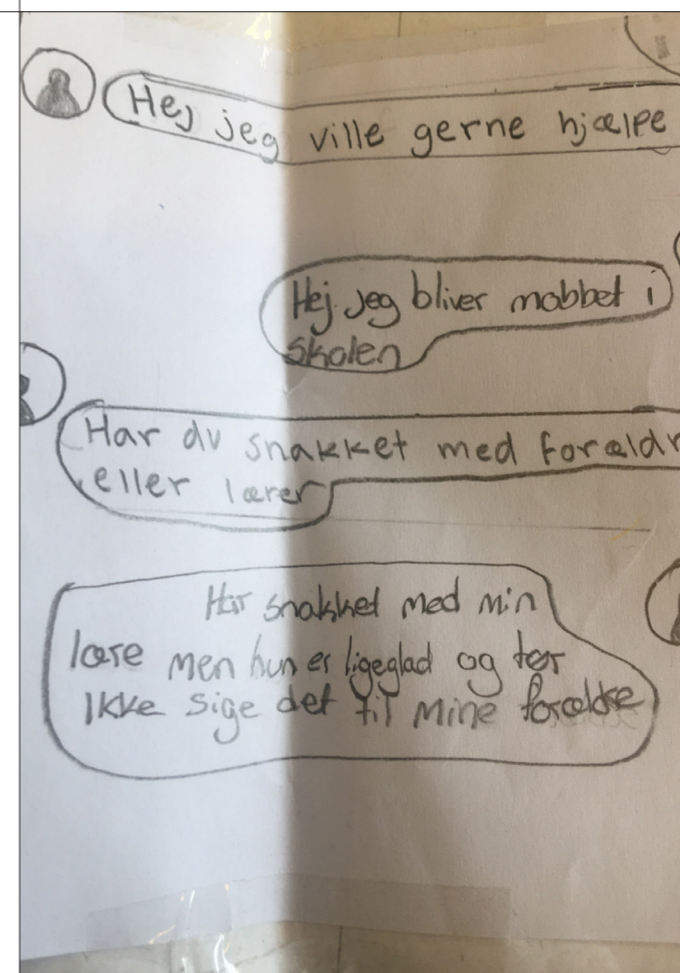 Hej jeg ville gerne hjælpe
Hej jeg bliver mobbet i
skolen
Har du snakket med forældr
eller lærer
Har snakket med min
lære men hun er ligeglad og tør
ikke sige det til mine forældre